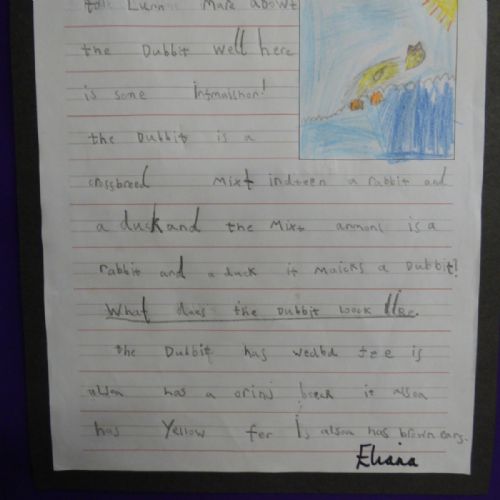 Mare about
the Dubbit well here
is some Infmaishon!
the Dubbit is a
crossbreed Mixt indteen a rabbit and
a duck and the Mixt anmonl is a
rabbit and a duck it Maicks a Dubbit!
What does the Dubbit loock like.
the Dubbit has wedbd tee is
alson has a orinj beack it alson
has Yellow fer is alson has brown ears.
Eliana